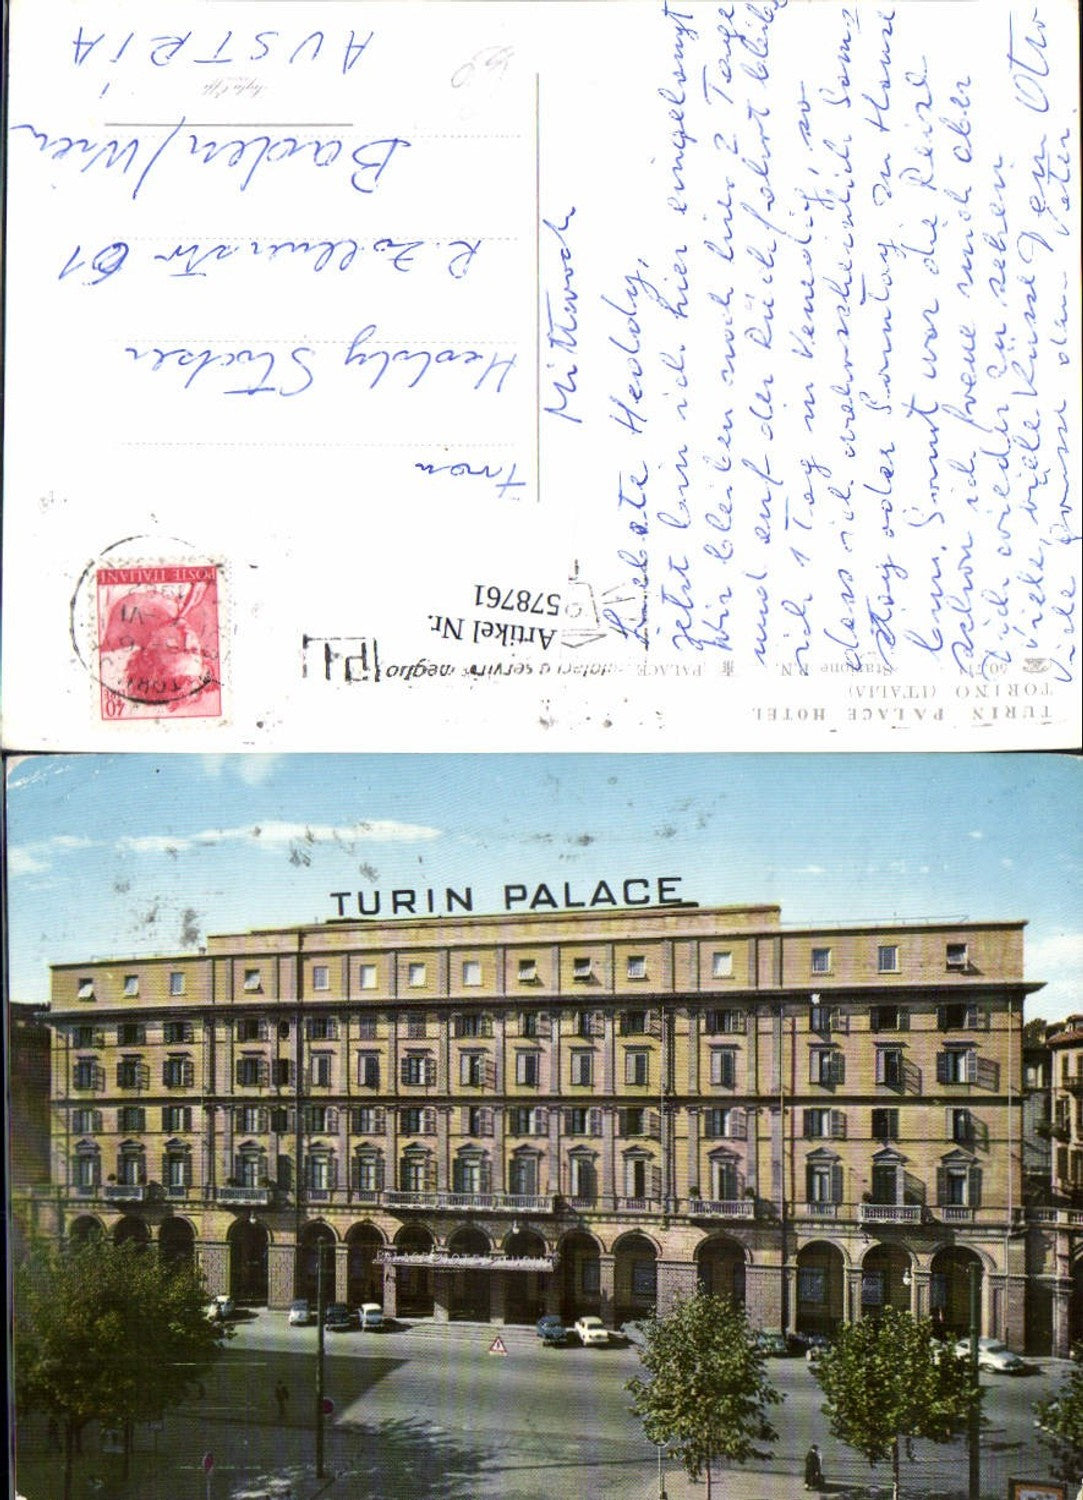 TURIN PALACE HOTEL
TORINO (ITALIA)
Stazione P.N.
PALACE
Artikel Nr.
578761
POSTE ITALIANE
40
Frau
Heddy Stocker
Baden/Wien
AUSTRIA
Mittwoch
Liebste Heddy,
Jetzt bin ich hier eingelangt
Wir bleiben noch hier 2 Tage
und auf der Rückfahrt bleibe
ich 1 Tag in Venedig, so
dass ich wahrscheinlich Sams
tag oder Sonntag zu Hause
bin. Sonst war die Reise
schön ich freue mich aber
Dich wieder zu sehen.
Viele, viele Küsse Dein Otto
Viele Grüsse dem Vater.
TURIN PALACE